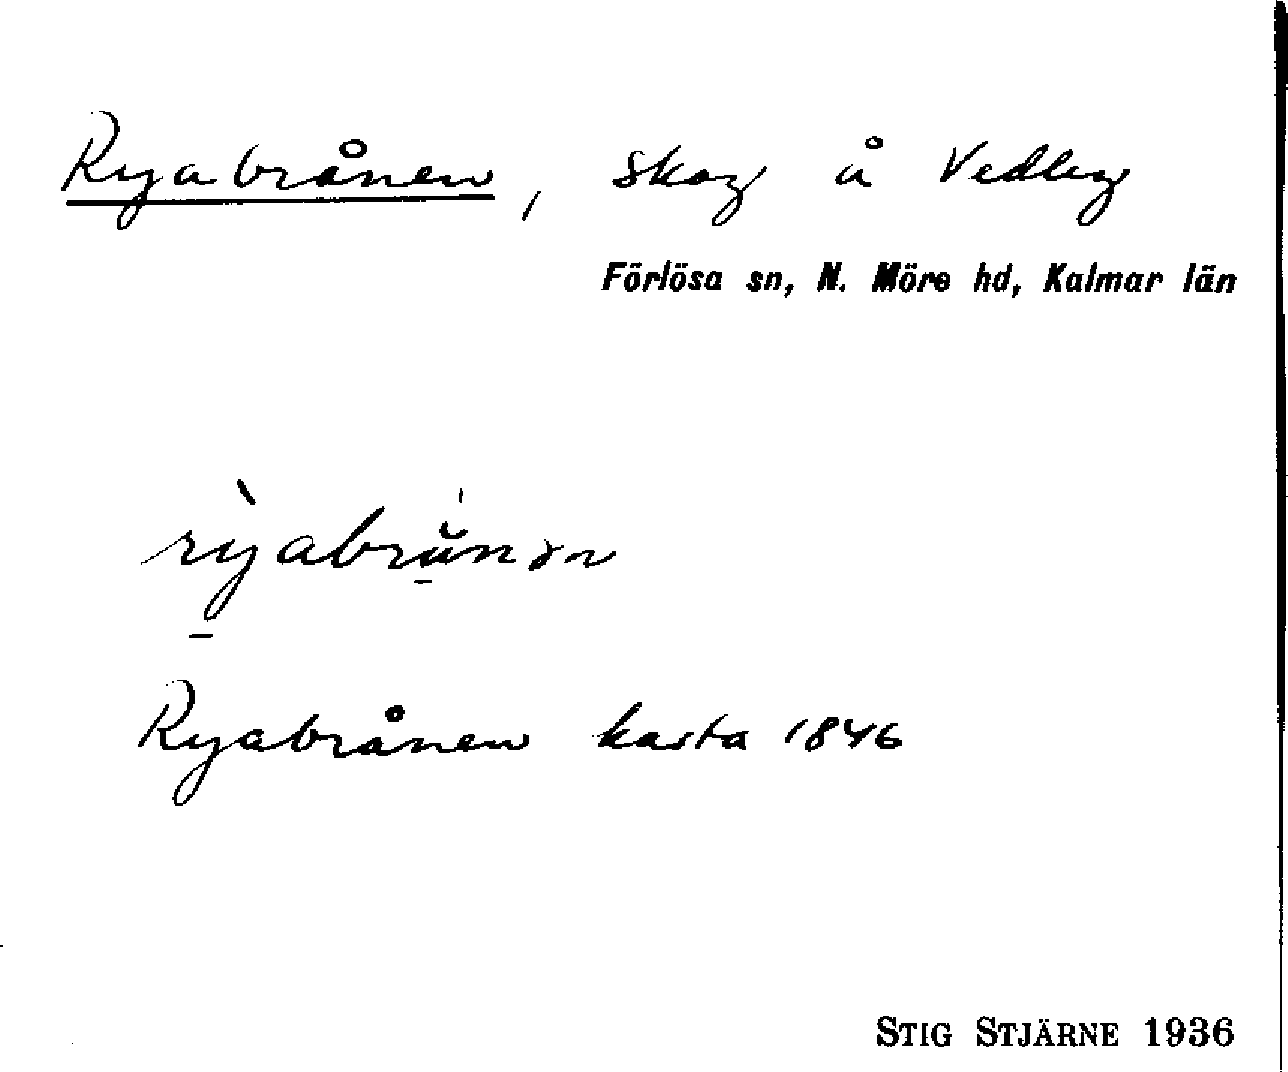 Ryabrånen, skog å Vedleg
Förlösa sn, N. Möre hd, Kalmar län
Ryabrånen karta 1846
STIG STJÄRNE 1936